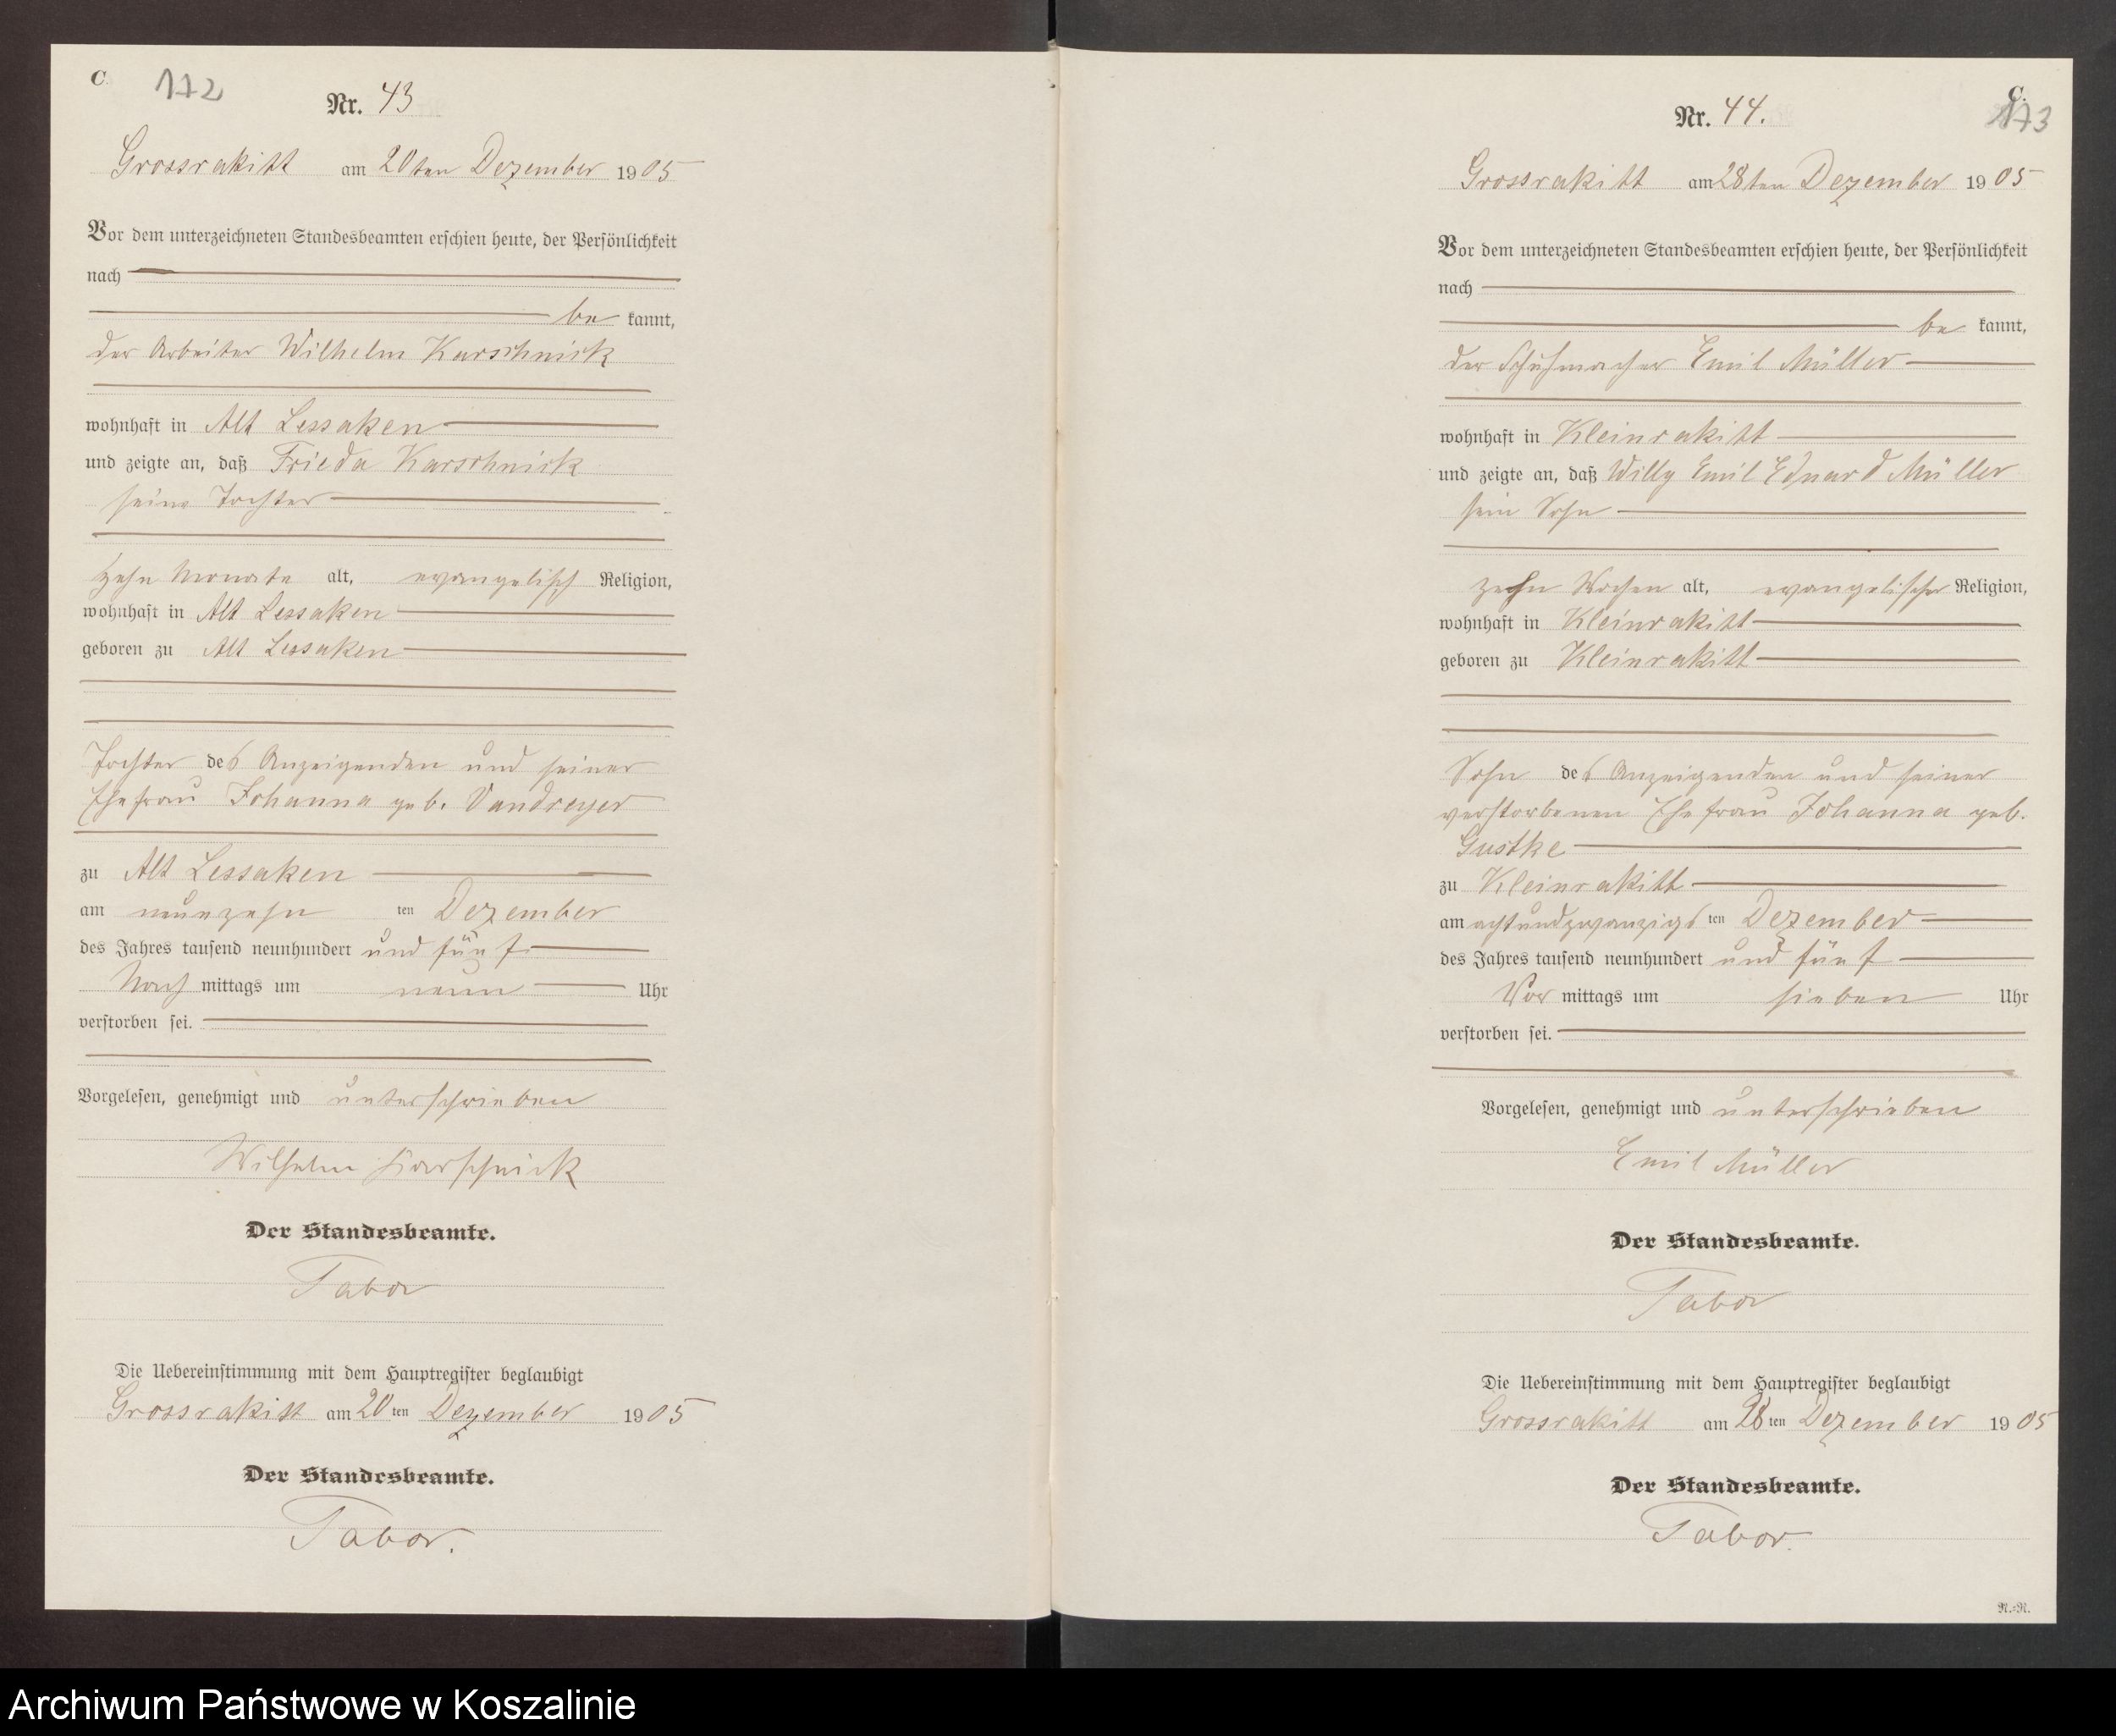 C. 172
Nr. 43
Grossrakitt am 20ten Dezember 1905
Vor dem unterzeichneten Standesbeamten erschien heute, der Persönlichkeit
nach
be kannt,
der Arbeiter Wilhelm Karschnick
wohnhaft in Alt Lessaken
und zeigte an, daß Frieda Karschnick
seine Tochter
zehn Monate alt, evangelisch Religion,
wohnhaft in Alt Lessaken
geboren zu Alt Lessaken
Tochter des Anzeigenden und seiner
Ehefrau Johanna geb. Vandreyer
zu Alt Lessaken
am neunzehn ten Dezember
des Jahres tausend neunhundert und fünf
Nach mittags um neun Uhr
verstorben sei.
Vorgelesen, genehmigt und unterschrieben
Wilhelm Karschnick
Der Standesbeamte.
Tabor
Die Uebereinstimmung mit dem Hauptregister beglaubigt
Grossrakitt am 20 ten Dezember 1905
Der Standesbeamte.
Tabor.
C. 173
Nr. 44.
Grossrakitt am 28ten Dezember 1905
Vor dem unterzeichneten Standesbeamten erschien heute, der Persönlichkeit
nach
be kannt,
der Schuhmacher Emil Müller
wohnhaft in Kleinrakitt
und zeigte an, daß Willy Emil Eduard Müller
sein Sohn
zehn Wochen alt, evangelischer Religion,
wohnhaft in Kleinrakitt
geboren zu Kleinrakitt
Sohn des Anzeigenden und seiner
verstorbenen Ehefrau Johanna geb.
Gustke
zu Kleinrakitt
am achtundzwanzigs ten Dezember
des Jahres tausend neunhundert und fünf
Vor mittags um sieben Uhr
verstorben sei.
Vorgelesen, genehmigt und unterschrieben
Emil Müller
Der Standesbeamte.
Tabor
Die Uebereinstimmung mit dem Hauptregister beglaubigt
Grossrakitt am 28 ten Dezember 1905
Der Standesbeamte.
Tabor.
N.=R.
Archiwum Państwowe w Koszalinie